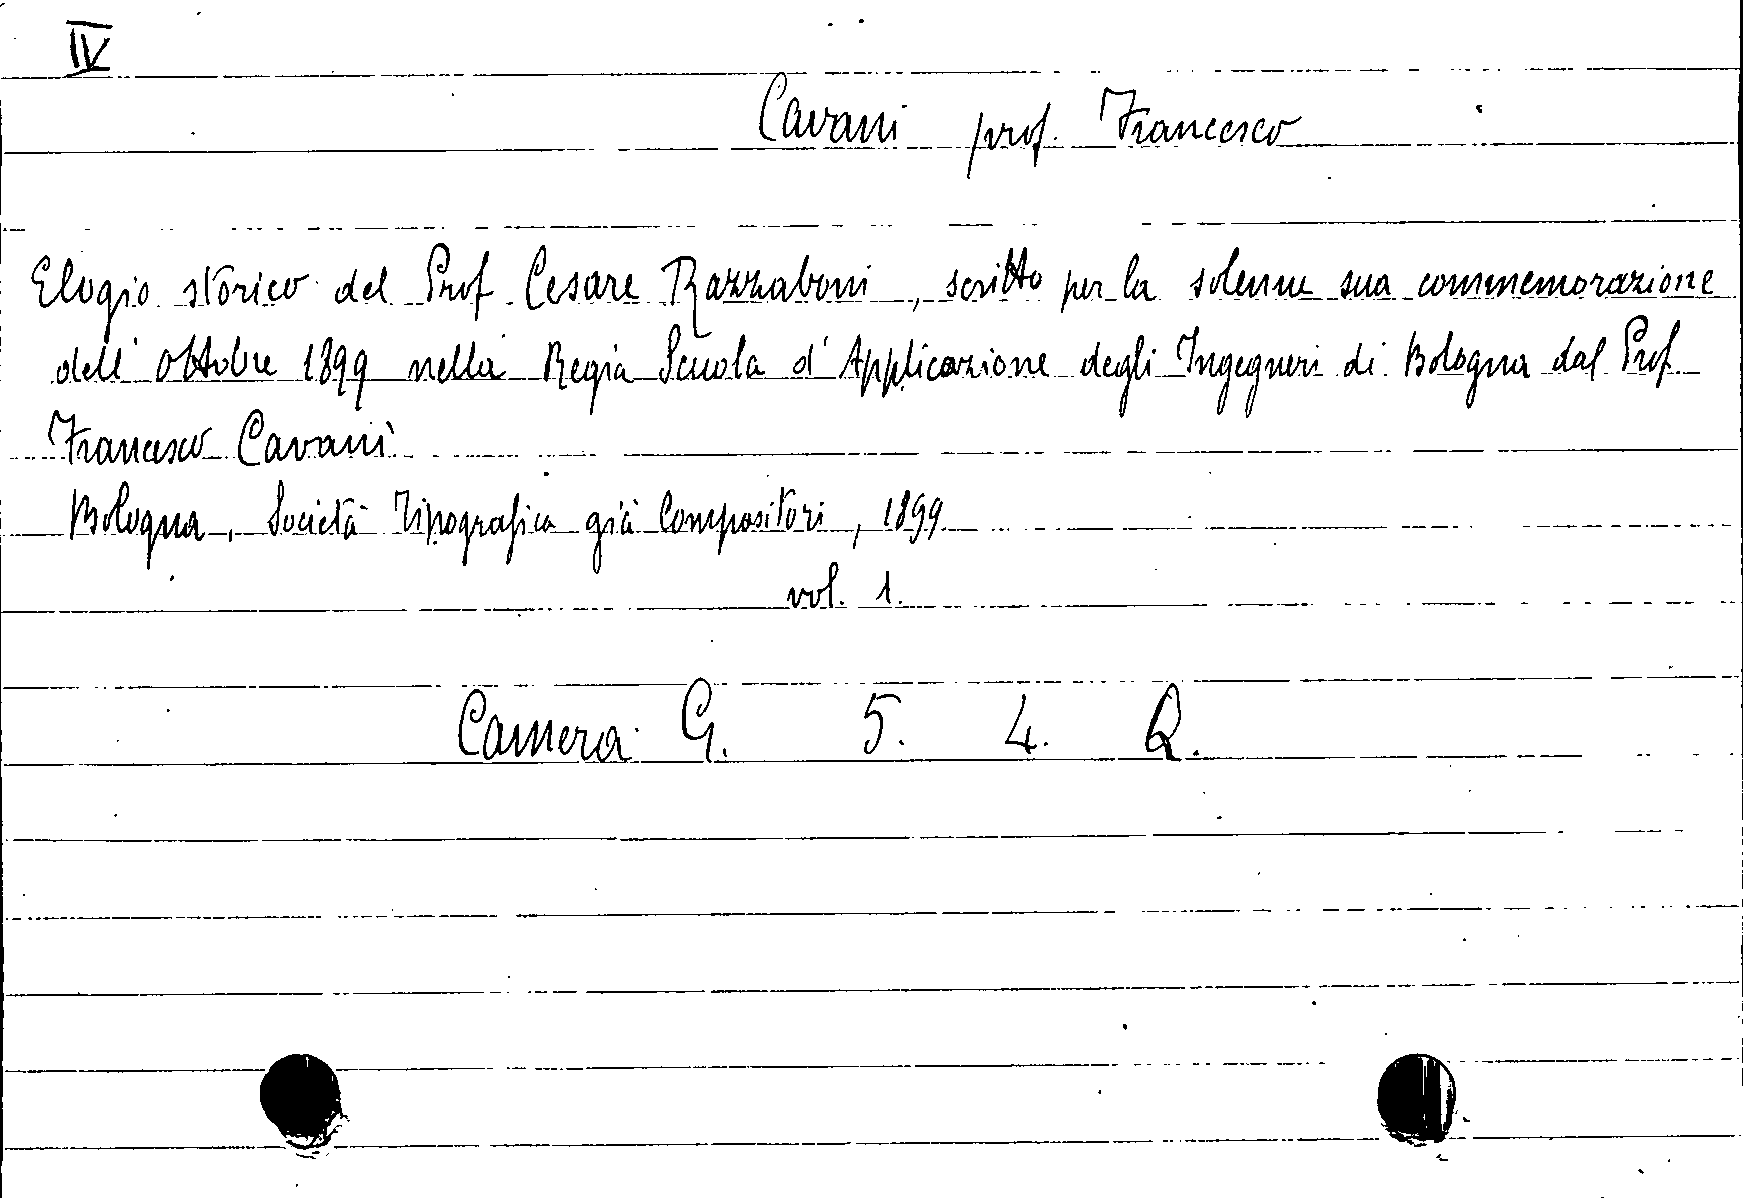 IV
Cavani prof. Francesco
Elogio storico del Prof Cesare Razzaboni, scritto per la solenne sua commemorazione
dell' ottobre 1899 nella Regia Scuola d'Applicazione degli Ingegneri di Bologna dal Prof
Francesco Cavani
Bologna, Società Tipografica già Compositori, 1899
vol. 1.
Camera G. 5. 4. Q.